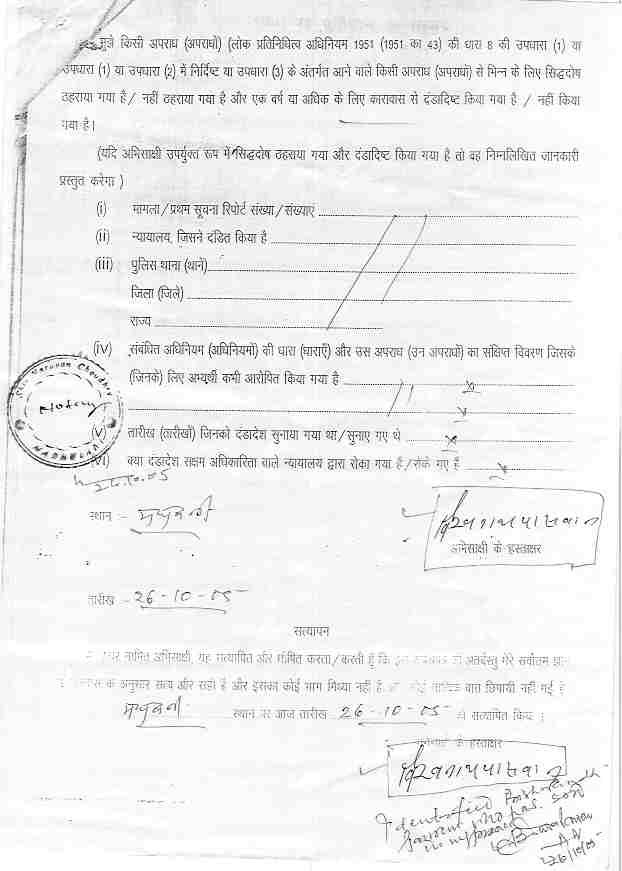 मुझे किसी अपराध (अपराधों) (लोक प्रतिनिधित्व अधिनियम 1951 (1951 का 43) की धारा 8 की उपधारा (1) या
उपधारा (1) या उपधारा (2) में निर्दिष्ट या उपधारा (3) के अंतर्गत आने वाले किसी अपराध (अपराधों) से भिन्न के लिए सिद्धदोष
ठहराया गया है / नहीं ठहराया गया है और एक वर्ष या अधिक के लिए कारावास से दंडादिष्ट किया गया है / नहीं किया
गया है।
(यदि अभिसाक्षी उपर्युक्त रूप में सिद्धदोष ठहराया गया और दंडादिष्ट किया गया है तो वह निम्नलिखित जानकारी
प्रस्तुत करेगा )
(i) मामला / प्रथम सूचना रिपोर्ट संख्या / संख्याएं
(ii) न्यायालय, जिसने दंडित किया है
(iii) पुलिस थाना (थाने)
जिला (जिले)
राज्य
(iv) संबंधित अधिनियम (अधिनियमों) की धारा (धाराएँ) और उस अपराध (उन अपराधों) का संक्षिप्त विवरण जिसके
(जिनके) लिए अभ्यर्थी कभी आरोपित किया गया है
Notary
(v) तारीख (तारीखों) जिनको दंडादेश सुनाया गया था / सुनाए गए थे
(vi) क्या दंडादेश सक्षम अधिकारिता वाले न्यायालय द्वारा रोका गया है / रोके गए हैं
26.10.05
स्थान :- मधुबनी
विश्वनाथ पासवान
अभिसाक्षी के हस्ताक्षर
तारीख - 26-10-05
सत्यापन
नामित अभिसाक्षी, यह सत्यापित और घोषित करता / करती हूँ कि इस के अंतर्वस्तु मेरे सर्वोत्तम ज्ञान
के अनुसार सत्य और सही है और इसका कोई भाग मिथ्या नहीं है कोई तात्विक बात छिपायी नहीं गई है
मधुबनी स्थान पर आज तारीख 26-10-05 को सत्यापित किया
के हस्ताक्षर
विश्वनाथ पासवान
Identified
in my presence
26/10/05